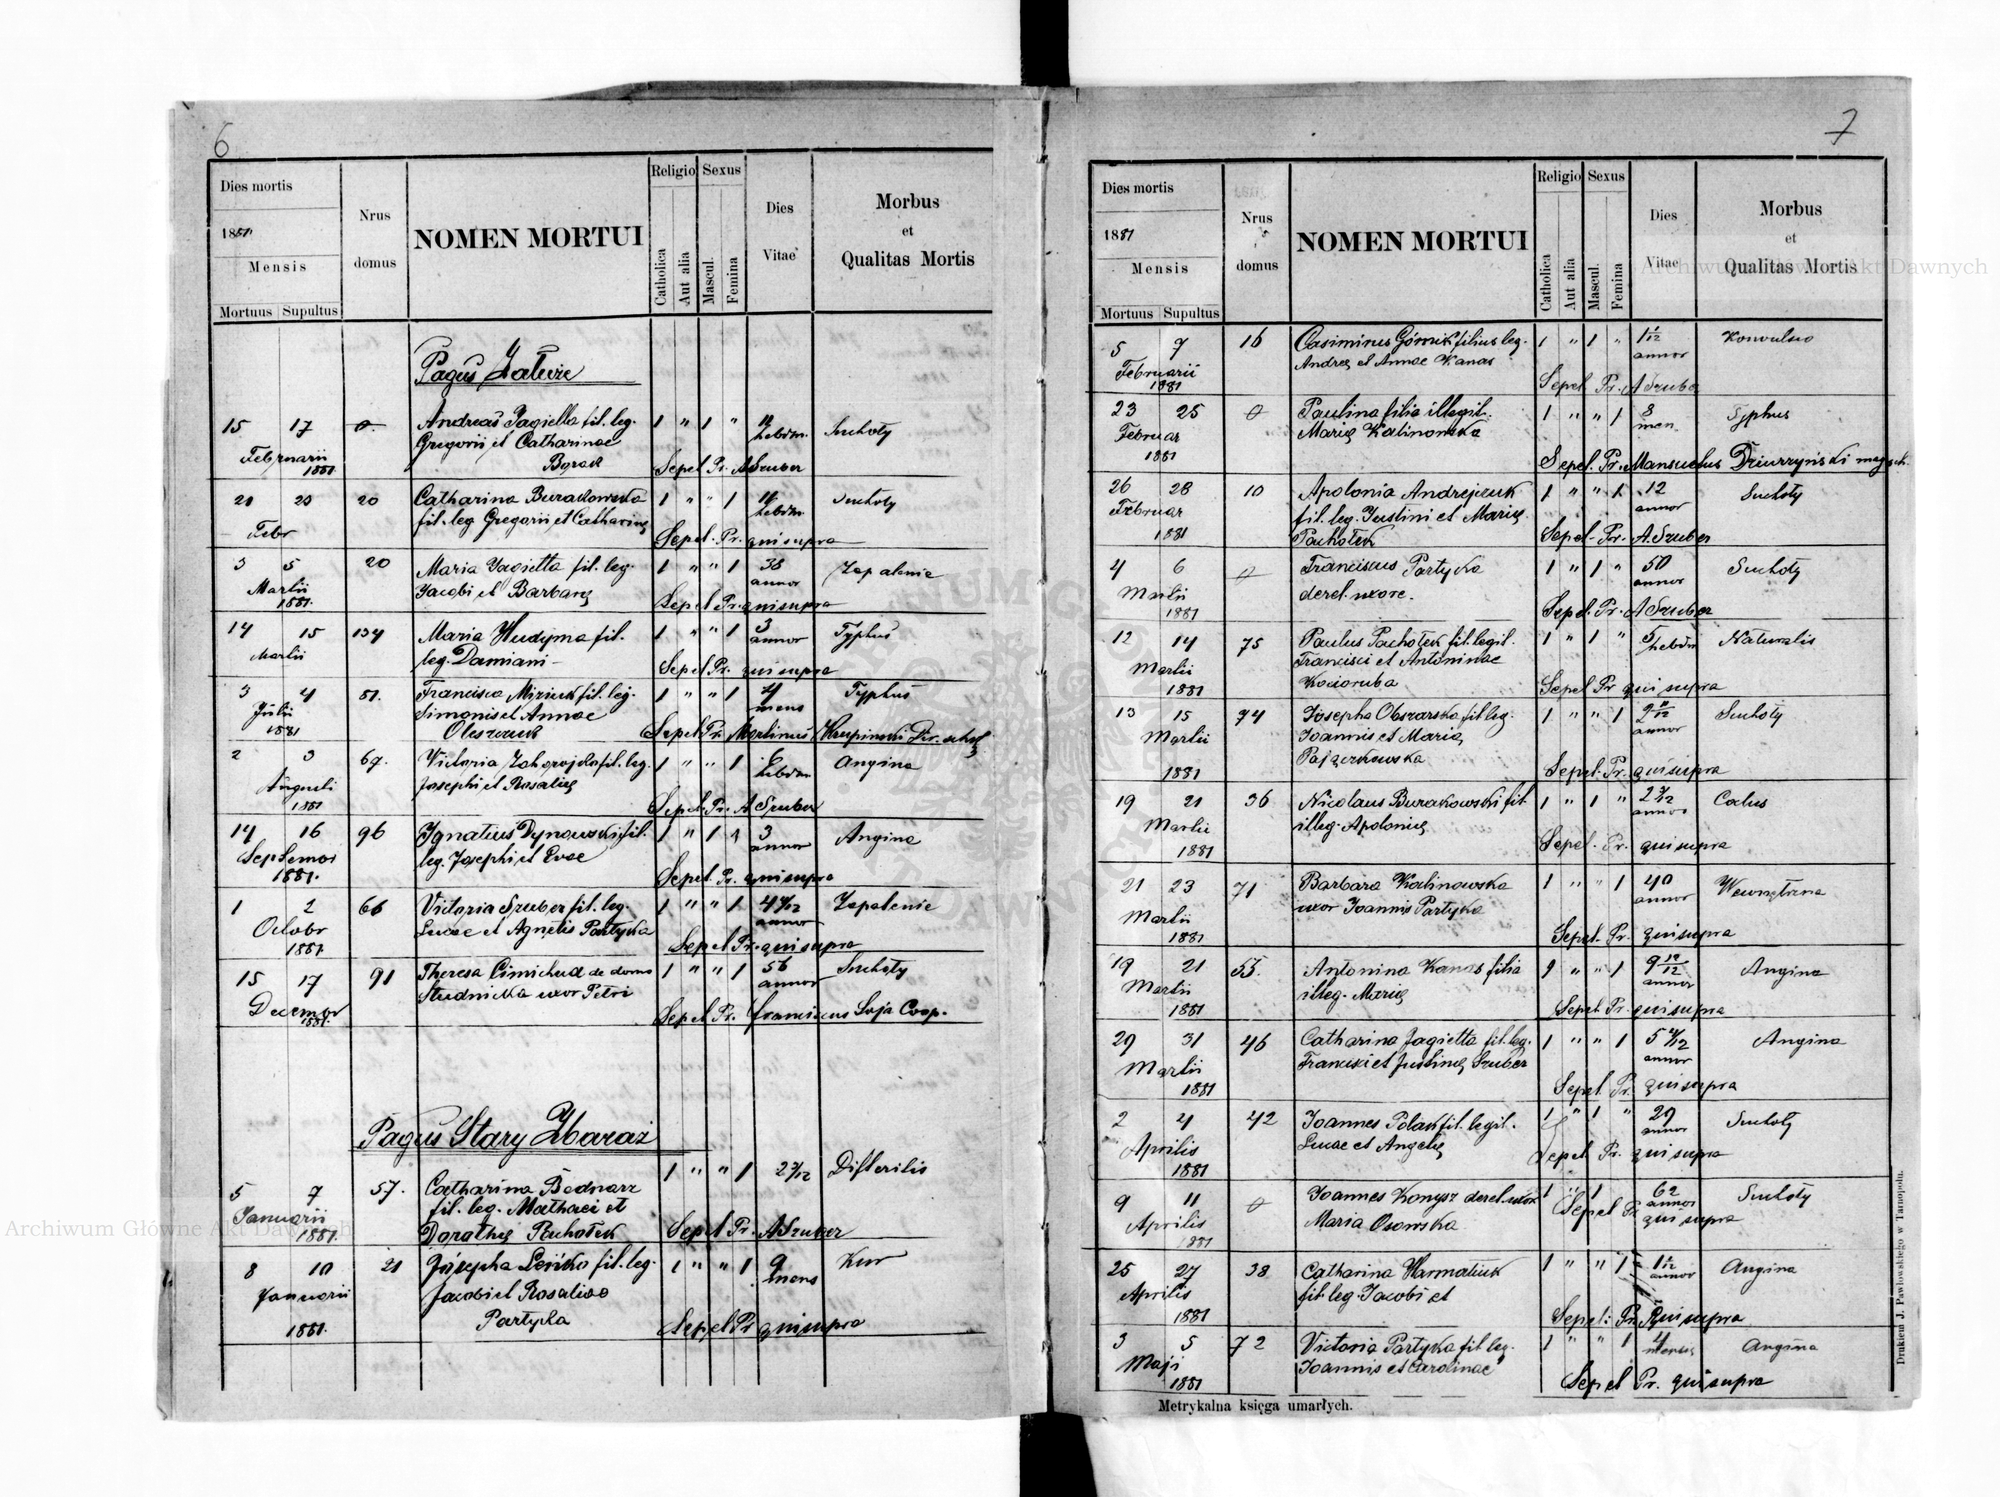 6
Dies mortis
1881
Mensis
Mortuus Supultus
Nrus
domus
NOMEN MORTUI
Religio Sexus
Catholica
Aut alia
Mascul.
Femina
Dies
Vitae
Morbus
et
Qualitas Mortis
Pagus
15 17 Andreas Jagiella fil. leg. 1 " 1 " Suchoty
Gregorii et Catharinae
Februarii
1881 Sepel. Pr. A Szuber
20 1 " " 1 Suchoty
fil. leg Gregorii et Catharinę
Febr Sepel. Pr. qui supra
3 5 20 Maria Jagiella fil. leg. 1 " " 1 Zapalenie
Martii Jacobi et Barbarę annor
1881. Sepel Pr. qui supra
14 15 134 Maria Hudyma fil. 1 " " 1 3 Typhus
Martii leg. Damiani annor
Sepel Pr. qui supra
3 4 51. Francisca fil. leg. 1 " " 1 4 Typhus
Julii Simonis et Annae mens
1881 Sepel Pr. Martinus Krupinski
2 3 69. Victoria fil. leg. 1 " " 1 Angina
Augusti Josephi et Rosalię hebdm
1881 Sepel. Pr. A Szuber
14 16 96 Ignatius fil. 1 " 1 3 Angina
leg. Josephi et Evae annor
1881. Sepel. Pr. qui supra
1 2 66 Victoria Szuber fil. leg. 1 " " 1 Zapalenie
Octobr Lucae et Agnetis Partyka annor
1881 Sepel Pr. qui supra
15 17 91 Theresa de domo 1 " " 1 56 Suchoty
Studnicka uxor Petri annor
1881. Sepel Pr. Franciscus Soja Coop.
Pagus Stary Zbaraż
5 7 57. Catharina Bednarz 1 " " 1 Difterilis
Januarii fil. leg. Mathaei et
1881. Dorothę Puchołek Sepel Pr. A Szuber
8 10 21 Josepha fil. leg. 1 " " 1 9 Kur
Januarii Jacobi et Rosaliae mens
1881. Partyka Sepel Pr qui supra
7
Dies mortis
1881
Mensis
Mortuus Supultus
Nrus
domus
NOMEN MORTUI
Religio Sexus
Catholica
Aut alia
Mascul.
Femina
Dies
Vitae
Morbus
et
Qualitas Mortis
5 7 16 Casimirus Górnik filius leg. 1 " 1 " 1 1/12
Februarii Andreę et Annae Kanas annor
1881 Sepel Pr. A Szuber
23 25 0 Paulina filia illegit. 1 " " 1 8 Typhus
Februar Marię Kalinowska men.
1881 Sepel. Pr. Mansuetus Dziurzyński
26 28 10 Apolonia Andrejczuk 1 " " 1 12 Suchoty
Februar fil. leg. Justini et Marię annor
1881 Puchołek Sepel. Pr. A. Szuber
4 6 0 Franciscus Partyka 1 " 1 " 50 Suchoty
Martii derel. uxore. annor
1881 Sepel. Pr. A Szuber
12 14 75 Paulus Puchołek fil. legit. 1 " 1 " 5 Naturalis
Martii Francisci et Antoninae hebdm
1881 Kocioruba Sepel Pr qui supra
13 15 74 Josepha Obszarska fil leg. 1 " " 1 Suchoty
Martii Joannis et Marię annor
1881 Pajączkowska Sepel. Pr. qui supra
19 21 36 Nicolaus Burakowski fil. 1 " 1 "
Martii illeg. Apolonię annor
1881 Sepel. Pr. qui supra
21 23 71 Barbara Kalinowska 1 " " 1 40 Wewnętrzna
Martii uxor Joannis Partyka annor
1881 Sepel. Pr. qui supra
19 21 55. Antonina Kanas filia 1 " " 1 Angina
Martii illeg. Marię annor
1881 Sepel Pr. qui supra
29 31 46 Catharina Jagiella fil. leg. 1 " " 1 Angina
Martii Francisci et Justinę Szuber annor
1881 Sepel Pr. qui supra
2 4 42 Joannes Polak fil. legit. 1 " 1 " 29 Suchoty
Aprilis Lucae et Angelę annor
1881 Sepel Pr. qui supra
9 11 0 Joannes Konysz derel. uxor 1 " 1 62 Suchoty
Aprilis Maria Osowska annor
1881 Sepel Pr qui supra
25 27 38 Catharina Harmatiuk 1 " " 1 1 1/12 Angina
Aprilis fil. leg. Jacobi et annor
1881 Sepel: Pr. Qui supra
3 5 72 Victoria Partyka fil leg. 1 " " 1 4 Angina
Maji Joannis et Carolinae mensis
1881 Sepel Pr. qui supra
Metrykalna księga umarłych.
Drukiem J. Pawłowskiego w Tarnopolu.
Archiwum Główne Akt Dawnych
Archiwum Główne Akt Dawnych